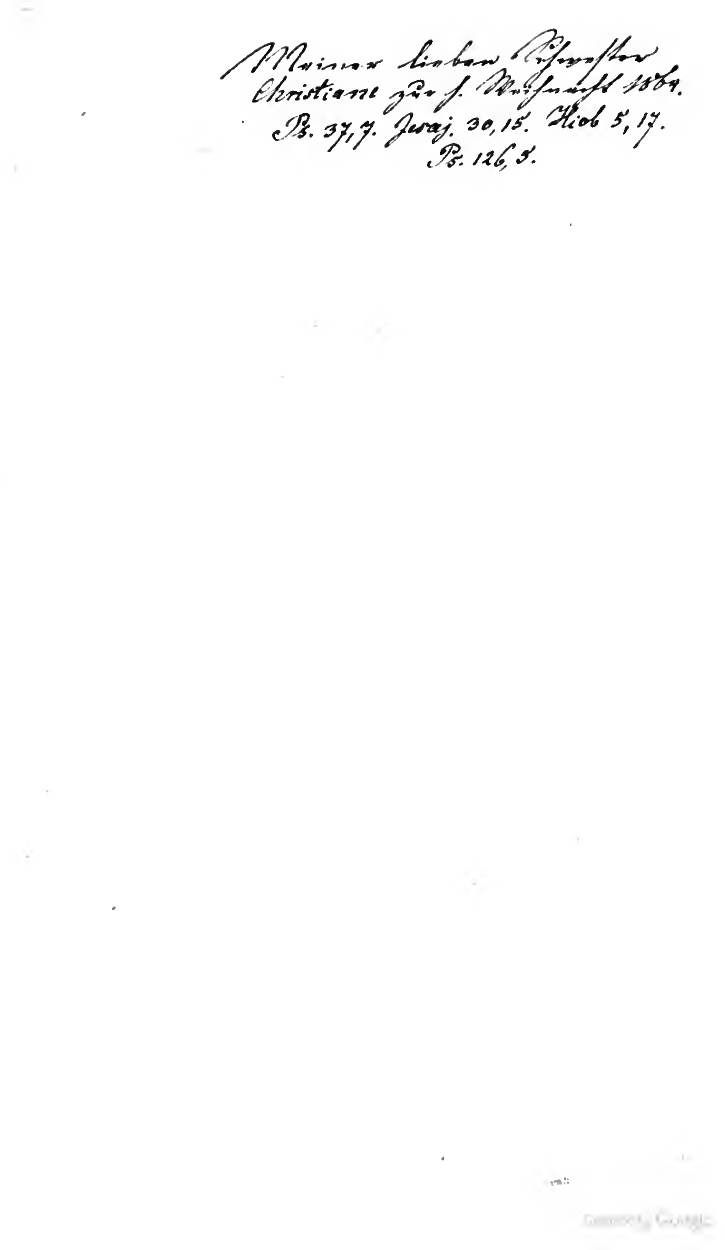 Meiner lieben Schwester
Christiane zur h. Weihnacht 1864.
Ps. 37,7. Jesaj. 30,15. Hiob 5,17.
Ps. 126,5.
Google